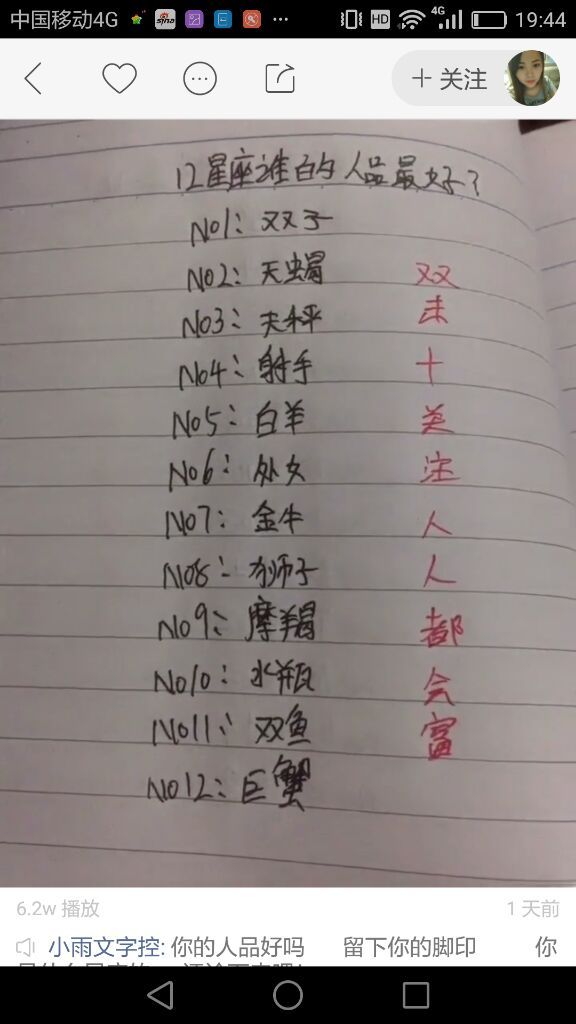 中国移动4G
HD
4G
19:44
+ 关注
12星座谁的人品最好?
No1: 双子
No2: 天蝎 双
No3: 天秤 击
No4: 射手 十
No5: 白羊 关
No6: 处女 注
No7: 金牛 人
No8: 狮子 人
No9: 摩羯 都
No10: 水瓶 会
No11: 双鱼 富
No12: 巨蟹
6.2w 播放
1 天前
小雨文字控: 你的人品好吗 留下你的脚印 你